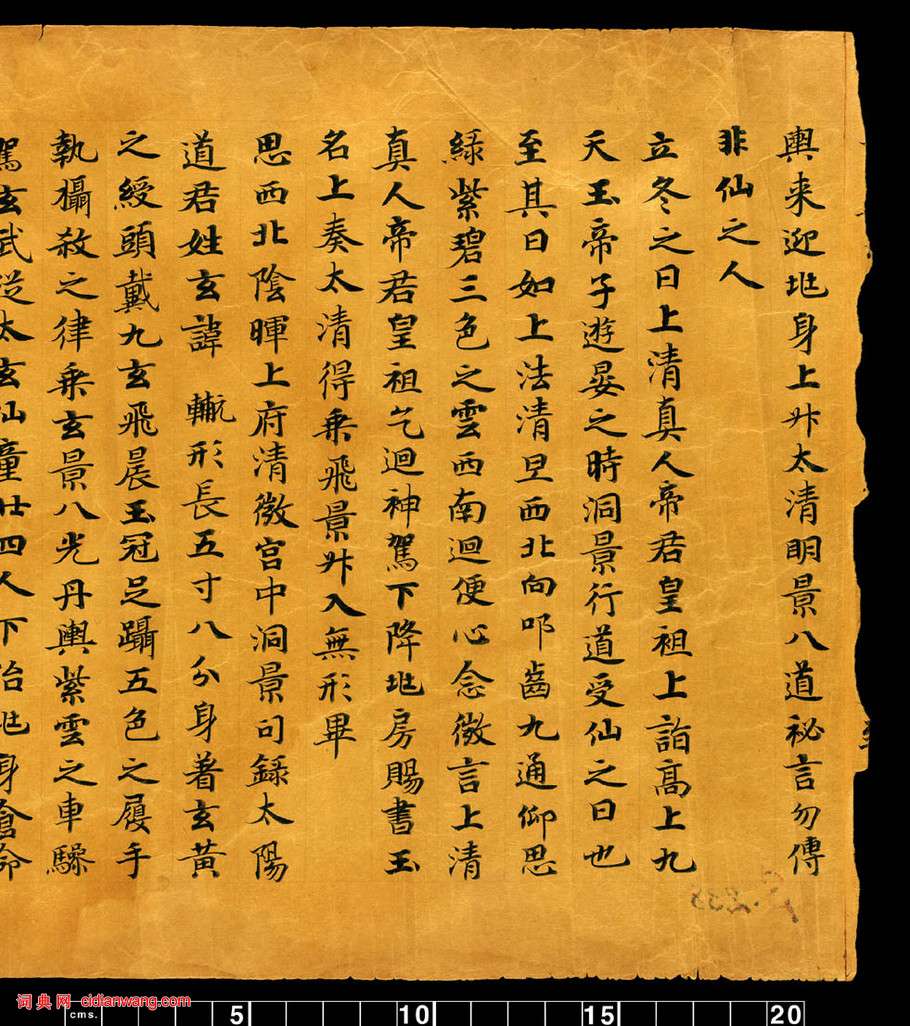 輿来迎𠰥身上升太清明景八道秘言勿傳
非仙之人
立冬之日上清真人帝君皇祖上詣髙上九
天玉帝子遊晏之時洞景行道受仙之日也
至其日如上法清旦西北向叩齒九通仰思
緑紫碧三色之雲西南迴便心念微言上清
真人帝君皇祖乞迴神駕下降𠰥房賜書玉
名上奏太清得乗飛景升入無形畢
思西北陰暉上府清微宫中洞景司録太陽
道君姓玄諱 形長五寸八分身著玄黃
之綬頭戴九玄飛晨玉冠足躡五色之履手
執攝赦之律乗玄景八光丹輿紫雲之車驂
駕玄武従太玄仙童廿四人下治𠰥身倉命
词典网 cidianwang.com
cms. 5 10 15 20